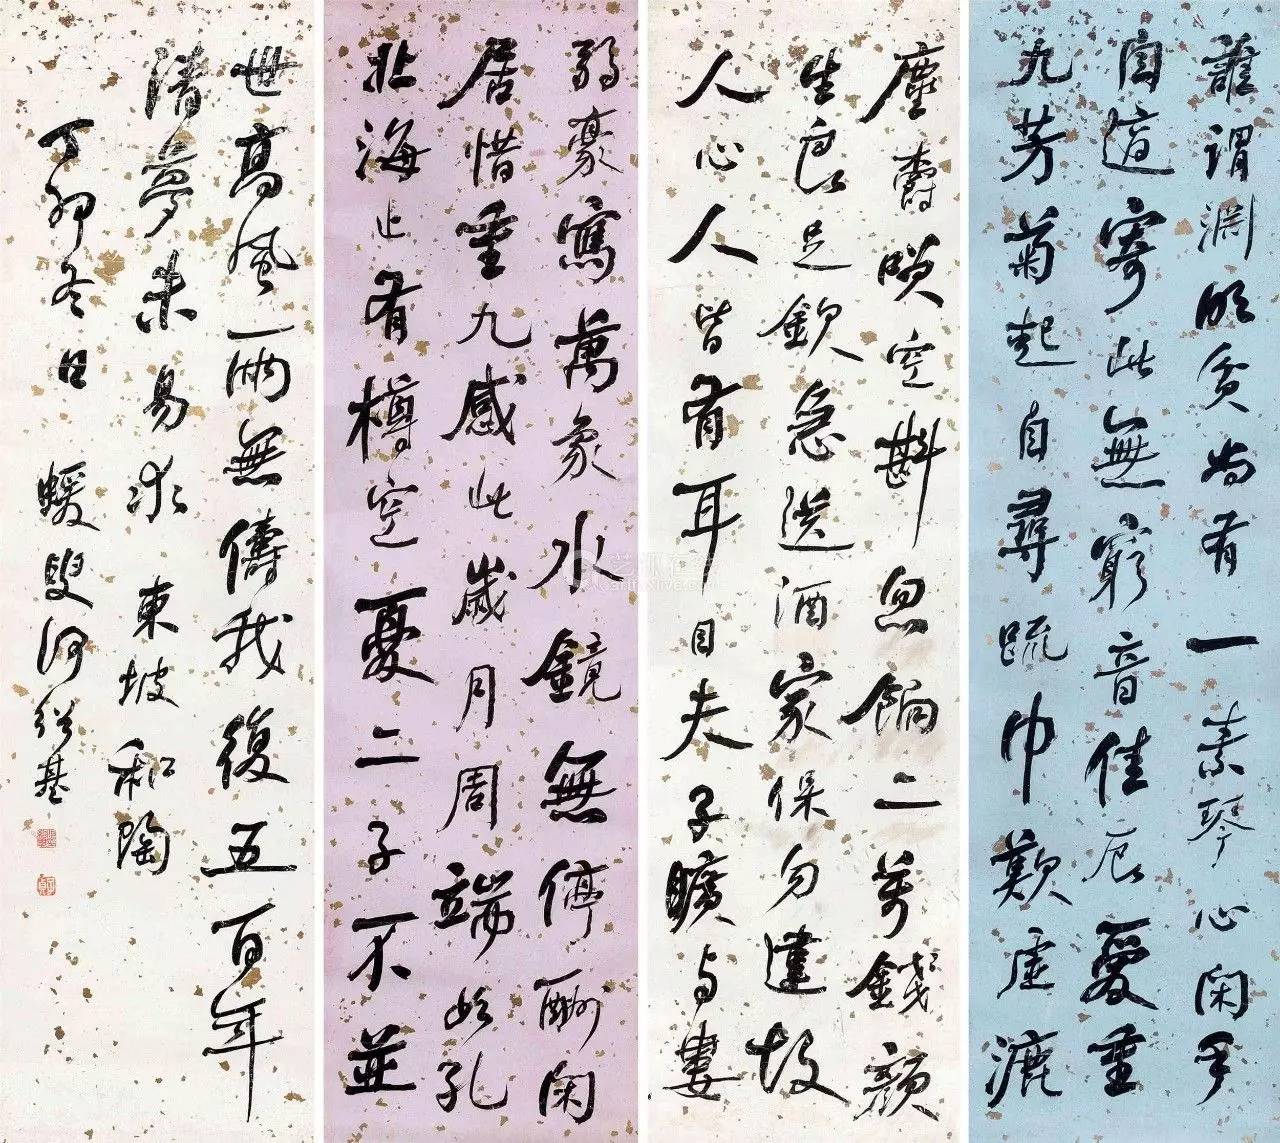 誰謂淵明貧尚有一素琴心閑手
自適寄此無窮音佳辰愛重
九芳菊起自尋疏巾歎虛漉
塵爵咲空斟忽餉二萬錢顏
生良足欽急送酒家保勿違故
人心人皆有耳目夫子曠與婁
弱豪寫萬象水鏡無停酬閑
居惜重九感此歲月周端如孔
北海止有樽空憂二子不並
世高風兩無儔我復五百年
清夢未易求東坡和陶
丁卯冬日 蝯叟何紹基